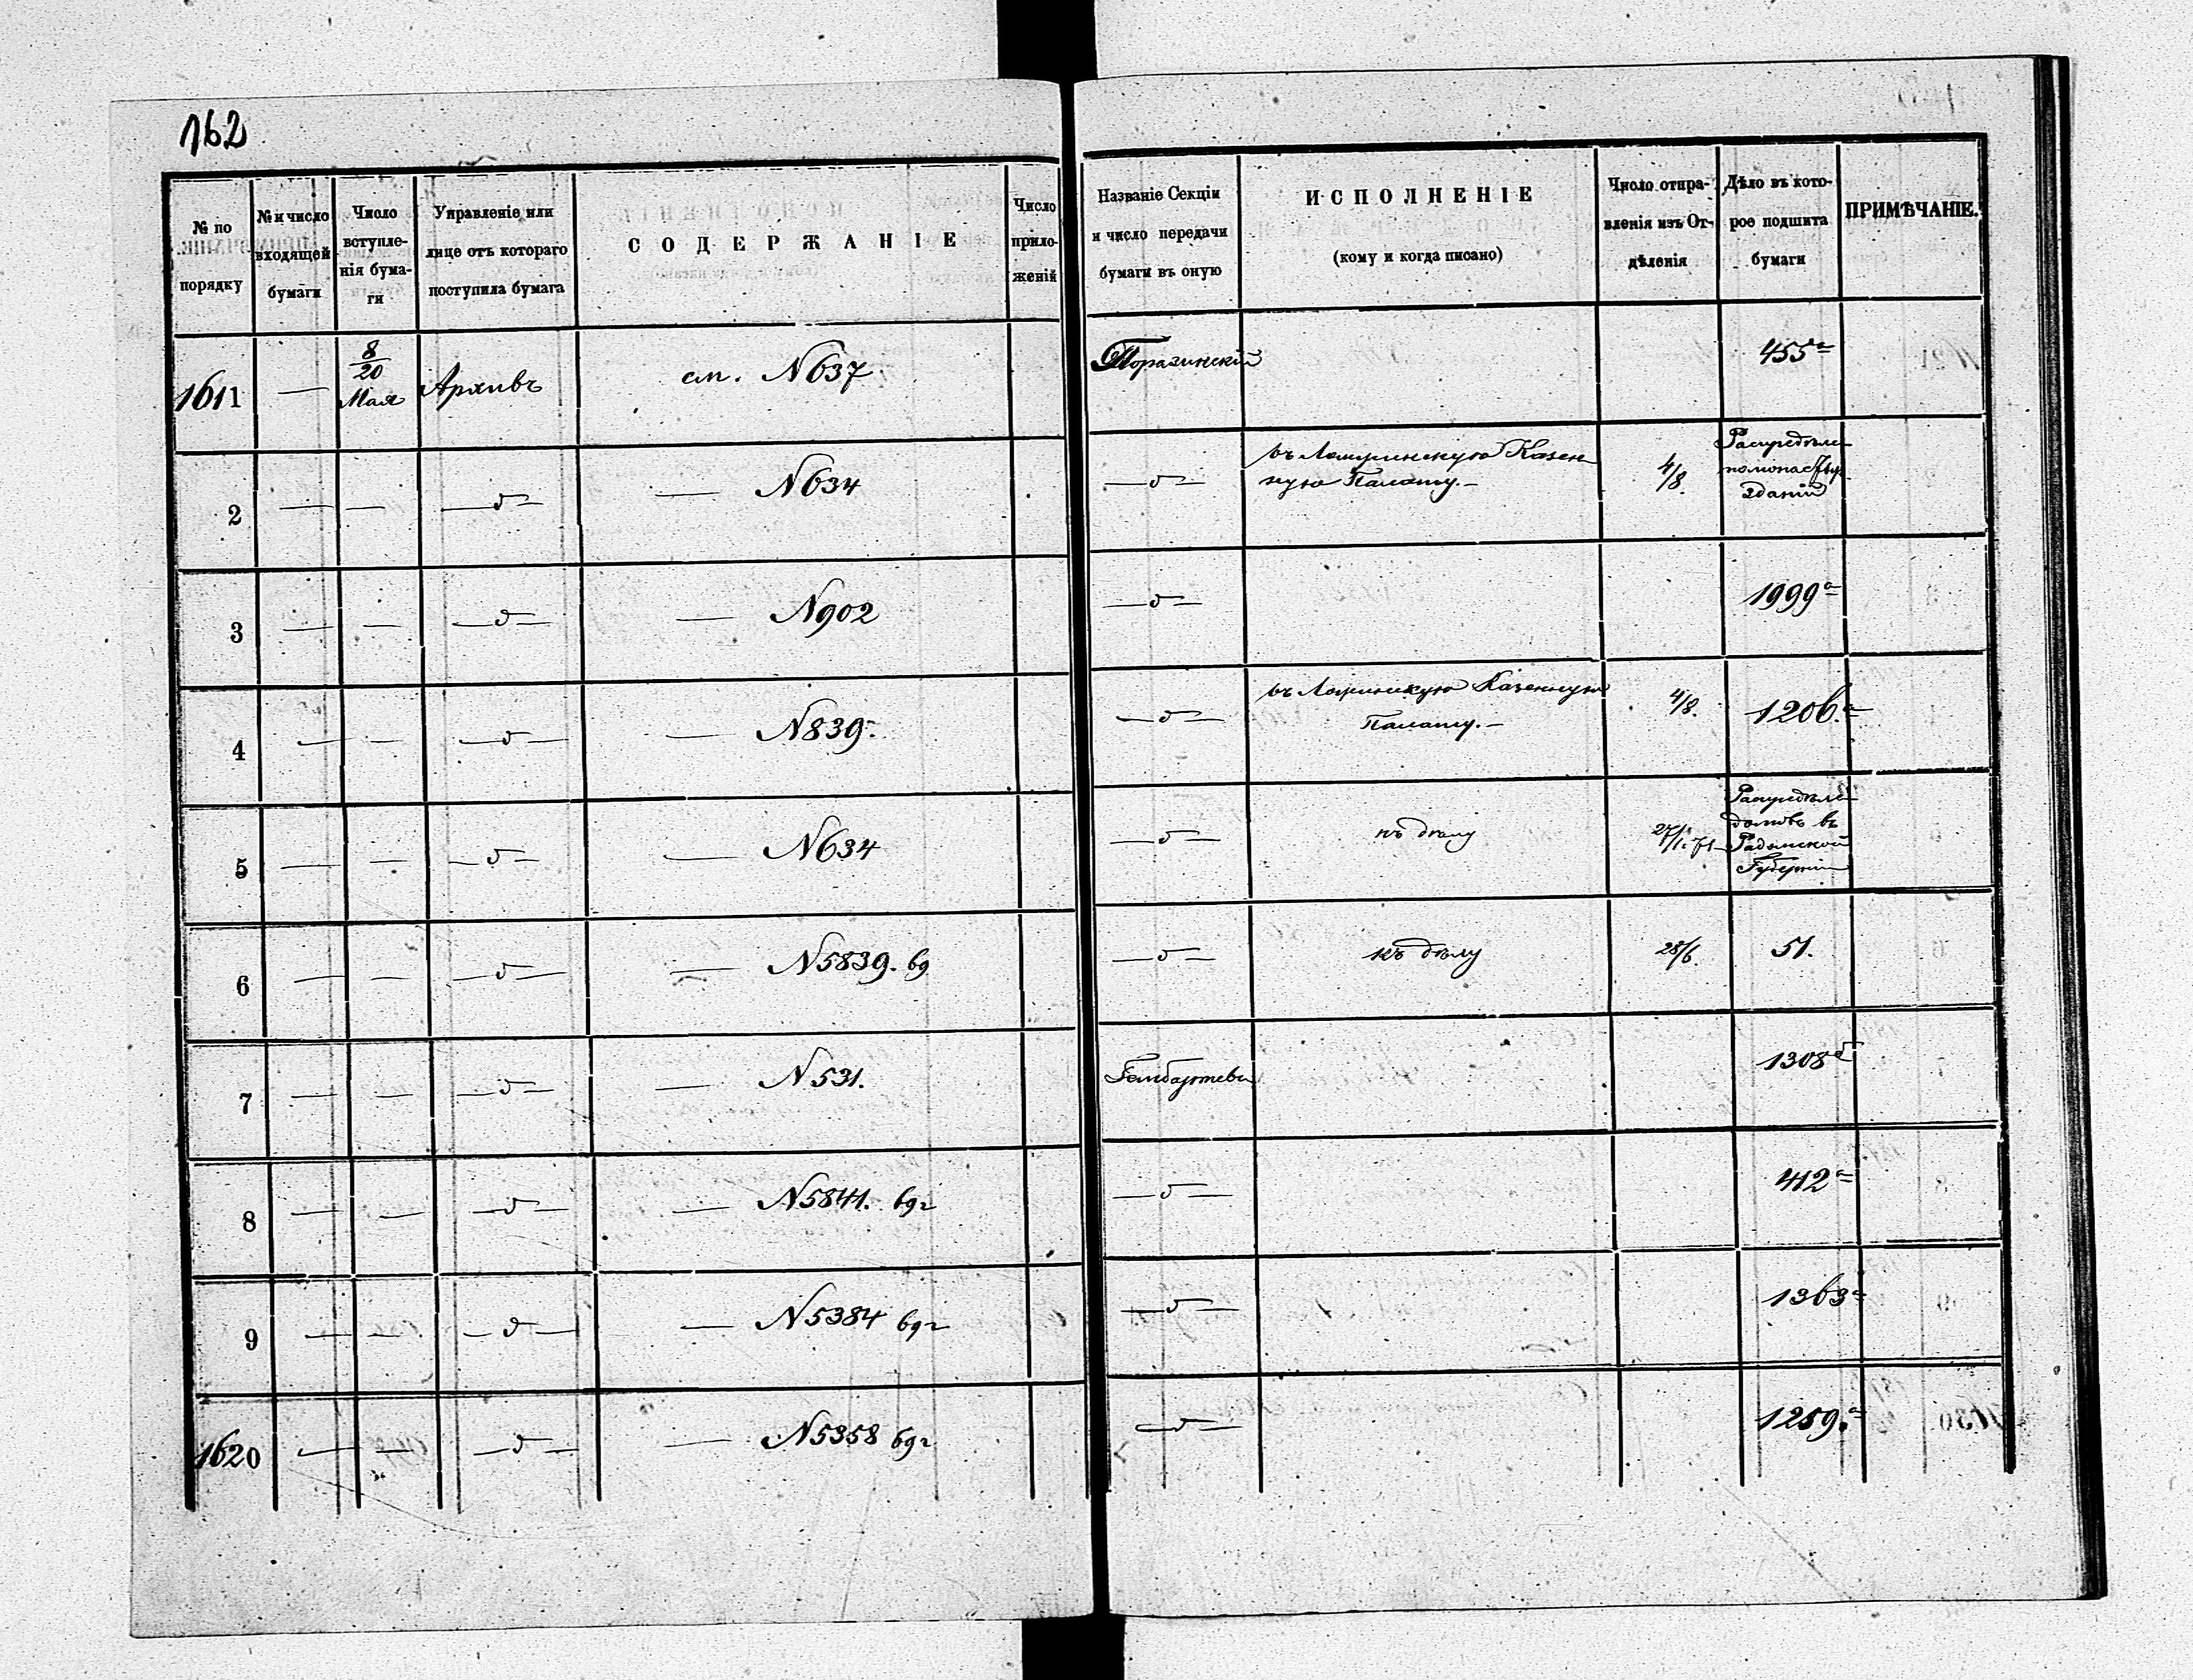 162
№ по порядку
№ и число входящей бумаги
Число вступленія бумаги
Управленіе или лице отъ котораго поступила бумага
СОДЕРЖАНІЕ
Число приложеній
Названіе Секціи и число передачи бумаги въ оную
ИСПОЛНЕНІЕ
(кому и когда писано)
Число отправленія изъ Отдѣленія
Дѣло въ которое подшита бумаги
ПРИМѢЧАНІЕ.
1611 — 8/20 Мая Архивъ см. N637 455а
2 — — —д— — N634 —д— въ Ломжинскую Казен
ную Палату.— 4/8.
зданій
3 — — —д— — N902 —д— 1999а
4 — — —д— — N839. —д— въ Ломжинскую Казенную
Палату.— 4/8. 1206.а
5 — — —д— — N634 —д— къ дѣлу
домовъ въ
Радомской
Губерніи
6 — — —д— — N5839. 69 —д— къ дѣлу 28/6. 51.
7 — — —д— — N531. 1308
8 — — —д— — N5841. 69г —д— 412а
9 — — —д— — N5384 69г —д— 1363а
1620 — — —д— — N5358 69г —д— 1259.а